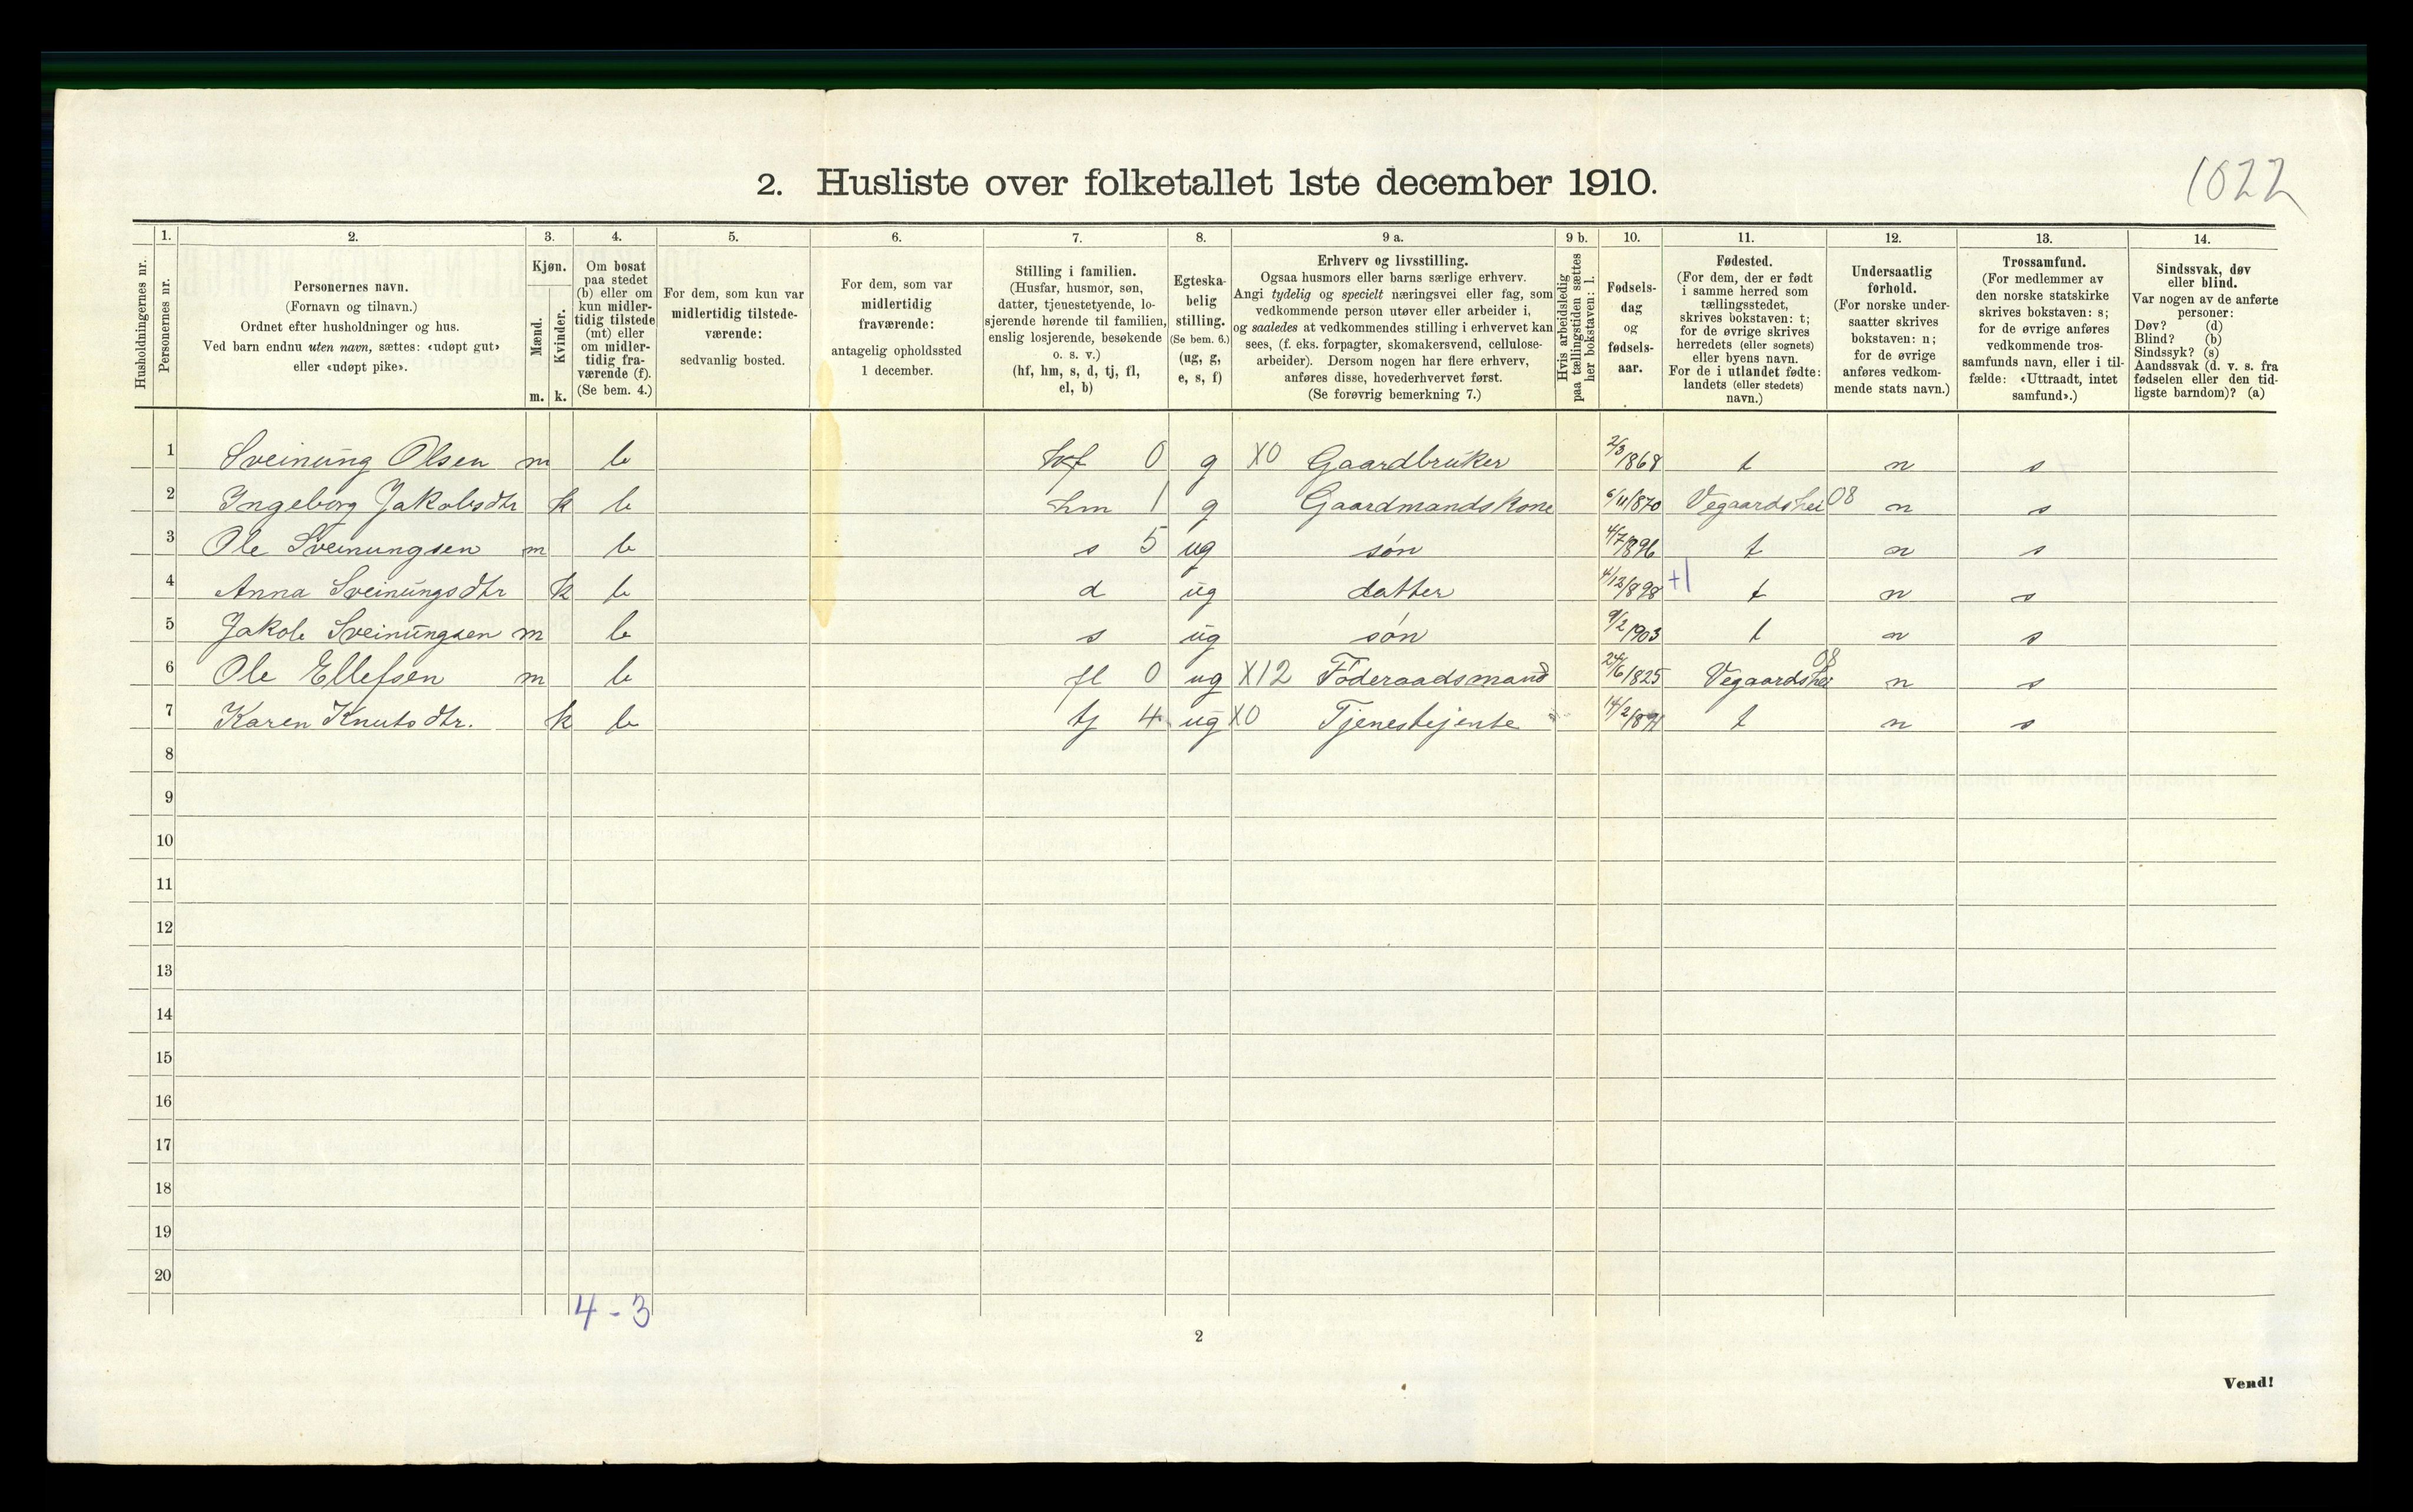 1022
2. Husliste over folketallet 1ste december 1910.
Husholdningernes nr.
1. Personernes nr.
2. Personernes navn. (Fornavn og tilnavn.) Ordnet efter husholdninger og hus. Ved barn endnu uten navn, sættes: «udøpt gut» eller «udøpt pike».
3. Kjøn. Mænd. m. Kvinder. k.
4. Om bosat paa stedet (b) eller om kun midler-tidig tilstede (mt) eller om midler-tidig fra-værende (f). (Se bem. 4.)
5. For dem, som kun var midlertidig tilstede-værende: sedvanlig bosted.
6. For dem, som var midlertidig fraværende: antagelig opholdssted 1 december.
7. Stilling i familien. (Husfar, husmor, søn, datter, tjenestetyende, lo-sjerende hørende til familien, enslig losjerende, besøkende o. s. v.) (hf, hm, s, d, tj, fl, el, b)
8. Egteska-belig stilling. (Se bem. 6.) (ug, g, e, s, f)
9 a. Erhverv og livsstilling. Ogsaa husmors eller barns særlige erhverv. Angi tydelig og specielt næringsvei eller fag, som vedkommende person utøver eller arbeider i, og saaledes at vedkommendes stilling i erhvervet kan sees, (f. eks. forpagter, skomakersvend, cellulose-arbeider). Dersom nogen har flere erhverv, anføres disse, hovederhvervet først. (Se forøvrig bemerkning 7.)
9 b. Hvis arbeidsledig paa tællingstiden sættes her bokstaven: l.
10. Fødsels-dag og fødsels-aar.
11. Fødested. (For dem, der er født i samme herred som tællingsstedet, skrives bokstaven: t; for de øvrige skrives herredets (eller sognets) eller byens navn. For de i utlandet fødte: landets (eller stedets) navn.)
12. Undersaatlig forhold. (For norske under-saatter skrives bokstaven: n; for de øvrige anføres vedkom-mende stats navn.)
13. Trossamfund. (For medlemmer av den norske statskirke skrives bokstaven: s; for de øvrige anføres vedkommende tros-samfunds navn, eller i til-fælde: «Uttraadt, intet samfund».)
14. Sindssvak, døv eller blind. Var nogen av de anførte personer: Døv? (d) Blind? (b) Sindssyk? (s) Aandssvak (d. v. s. fra fødselen eller den tid-ligste barndom)? (a)
1 Sveinung Olsen m b hf 0 g X0 Gaardbruker 2/3 1868 t n s
2 Ingeborg Jakobsdtr k b hm 1 g Gaardmandskone 6/11 1870 Vegaardshei 08 n s
3 Ole Sveinungsen m b s 5 ug søn 4/7 1896 t n s
4 Anna Sveinungsdtr k b d ug datter 4/12 1898 +1 t n s
5 Jakob Sveinungsen m b s ug søn 9/2 1903 t n s
6 Ole Ellefsen m b fl 0 ug X12 Föderaadsmand 24/6 1825 Vegaardshei 08 n s
7 Karen Knutsdtr. k b tj 4 ug X0 Tjenestejente 14/2 t n s
8
9
10
11
12
13
14
15
16
17
18
19
20
4 - 3
2
Vend!